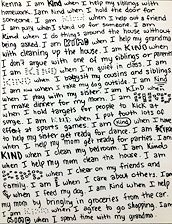 Kenna I am KIND when I help my siblings with
homework. I am kind when I hold the door for
someone. I am when I help out a friend
I am when I stand up for someone. I am
Kind when I do things around the house without
being asked. I am when I help my grandma
with cleaning up the house. I am KIND when
I don't argue with one of my siblings or mom
I am when I'm quiet in class. I am
when I babysit my cousins and siblings
I am when I take my dog outside. I am kind
when I play with my sister. I am KIND when
I make dinner for my mom. I am
when I hold targets for people to kick at
songs. I am KIND when I put 100% tons of
effort at sports games. I am KIND when I
help my sister get ready for dance. I am KIND
when I help my mom get ready for parties. I am
KIND when I clean my bedroom. I am Kind
when I help they mom clean the house. I am
when I clear on my friends and
family. I am when I care about others. I am
when I feed my dog. I am kind when I help
my mom by bringing in groceries from the car.
I am when I agree to go shopping. I am
when I spend time with my grandma